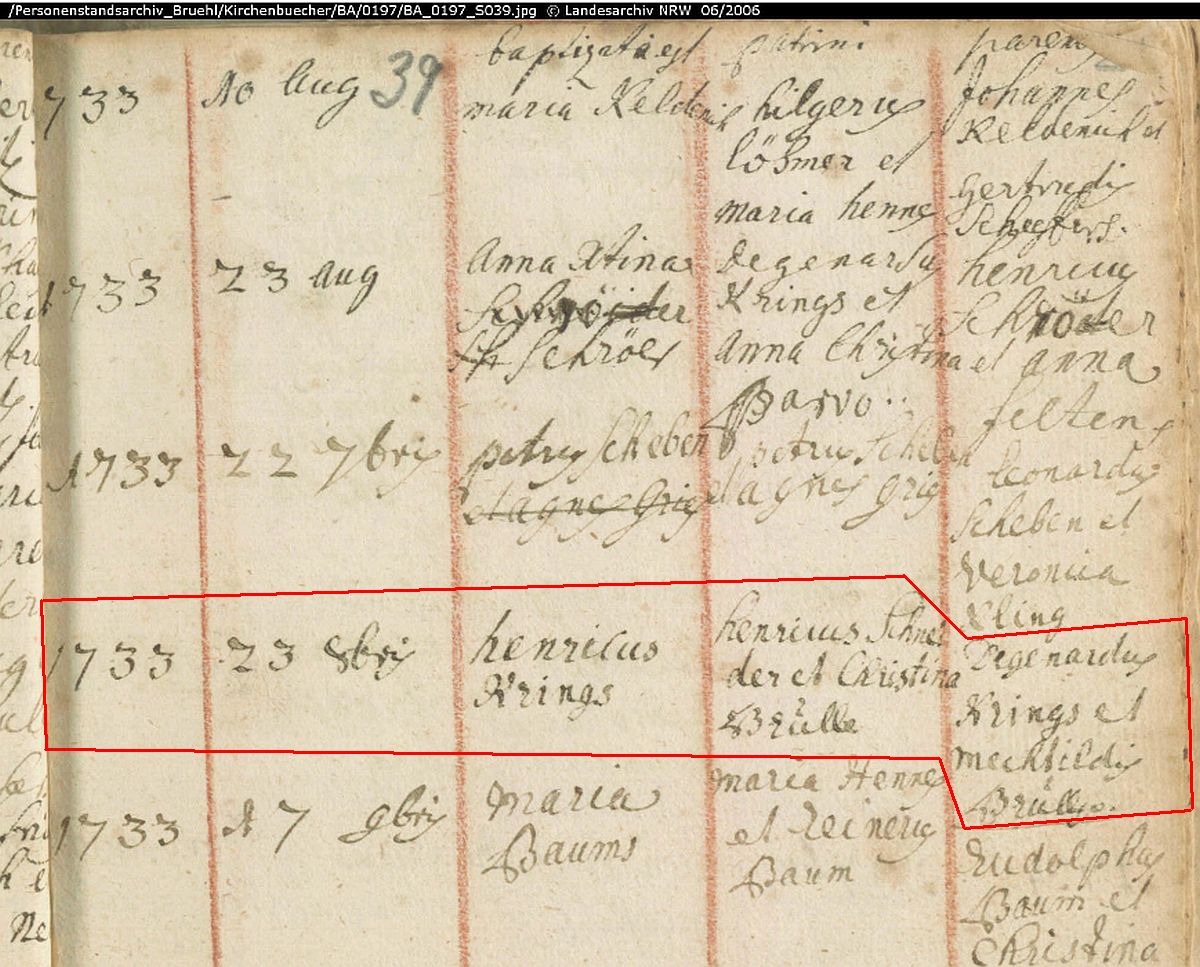 /Personenstandsarchiv_Bruehl/Kirchenbuecher/BA/0197/BA_0197_S039.jpg © Landesarchiv NRW 06/2006
39
baptizata est
patrini
733
10 aug
maria Keldenich
hilgerus
lösmer et
maria hennes
Johannes
Keldenich et
gertrudis
Scheffers.
733
23 aug
Anna Xtina
Schröer
Degenardus
Krings et
anna Christina
Parvo
henricus
Schröder
et anna
felten
1733
22 7bris
petrus Scheben
et agnes Grig
petrus Scheben
et agnes grig
leonardus
Scheben et
Veronica
Kling
1733
23 8bris
henricus
Krings
henricus Schnei
der et Christina
Brülls
Degenardus
Krings et
mechtildis
Brülls.
1733
17 9bris
maria
Baums
maria Hennes
et reinerus
Baum
Rudolphus
Baum et
Christina